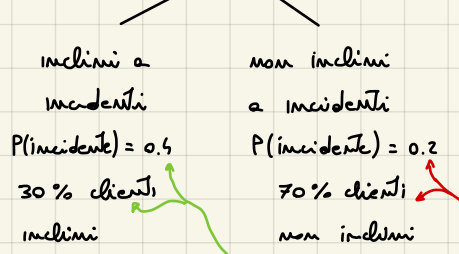 inclini a
incidenti
P(incidente) = 0.4
30% clienti
inclini
non inclini
a incidenti
P(incidente) = 0.2
70% clienti
non inclini